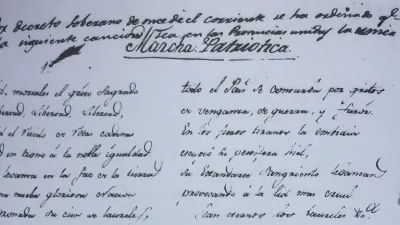 or decreto soberano de once del corriente se ha ordenado qe
la siguiente cancion sea en las Provincias unidas la unica
Marcha Patriotica.
d, mortales el grito Sagrado
ertad, Libertad, Libertad,
d el ruido de rotas cadenas
d en trono á la noble igualdad
levanta en la faz de la tierra
na nueva gloriosa nacion
ronada su sien de laureles,
todo el Pais se conturba por gritos
de venganza, de guerra, y furor.
En los fieros tiranos la embidia
escupió su pestifera hiel,
Su Estandarte Sangriento levantan
provocando á la lid mas cruel
Sean eternos los laureles &.a